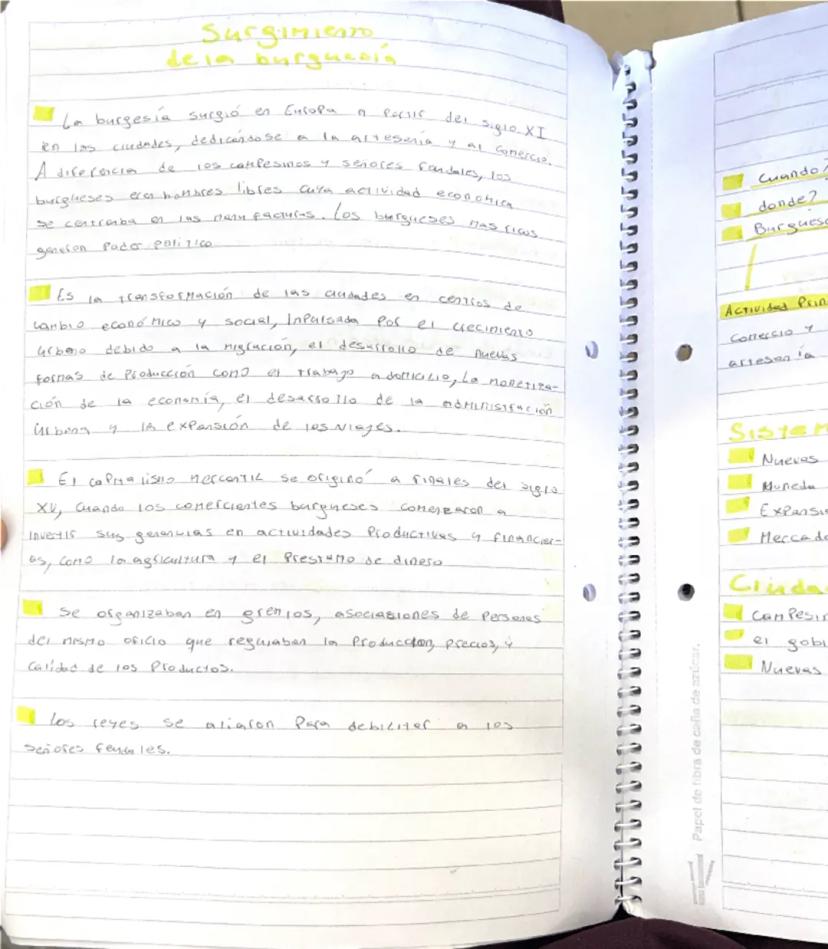 Surgimiento
de la burguesía
La burgesía surgió en Europa a partir del siglo XI
en las ciudades, dedicándose a la artesería y al comercio.
A diferencia de los campesinos y señores feudales, los
burgueses eran hombres libres cuya actividad económica
se centraba en las manufacturas. Los burgueses mas ricos
ganaron Poder político
Es la transformación de las ciudades en centros de
cambio económico y social, Inpulsada Por el crecimiento
urbano debido a la migración, el desarrollo de nuevas
formas de Producción como el trabajo a domicilio, La monetiza-
ción de la economía, el desarrollo de la administración
Urbana y la expansión de los viajes.
El capitalismo mercantil se originó a finales del siglo
XV, Cuando los comerciantes burgueses comenzaron a
invertir sus ganancias en actividades Productivas y financier-
as, como la agricultura y el Prestamo de dinero
Se organizaban en gremios, asociasiones de Personas
del mismo oficio que regulaban la Producción, precios, y
calidad de los Productos.
Los reyes se aliaron Para debilitar a los
señores feudales.
Cuando?
donde?
Burgues
Actividad Prin
Comercio y
artesería
Sistem
Nuevas
Moneda
Expansi
Mercado
Ciuda
Campesin
el gobi
Nuevas
Papel de fibra de caña de azúcar.